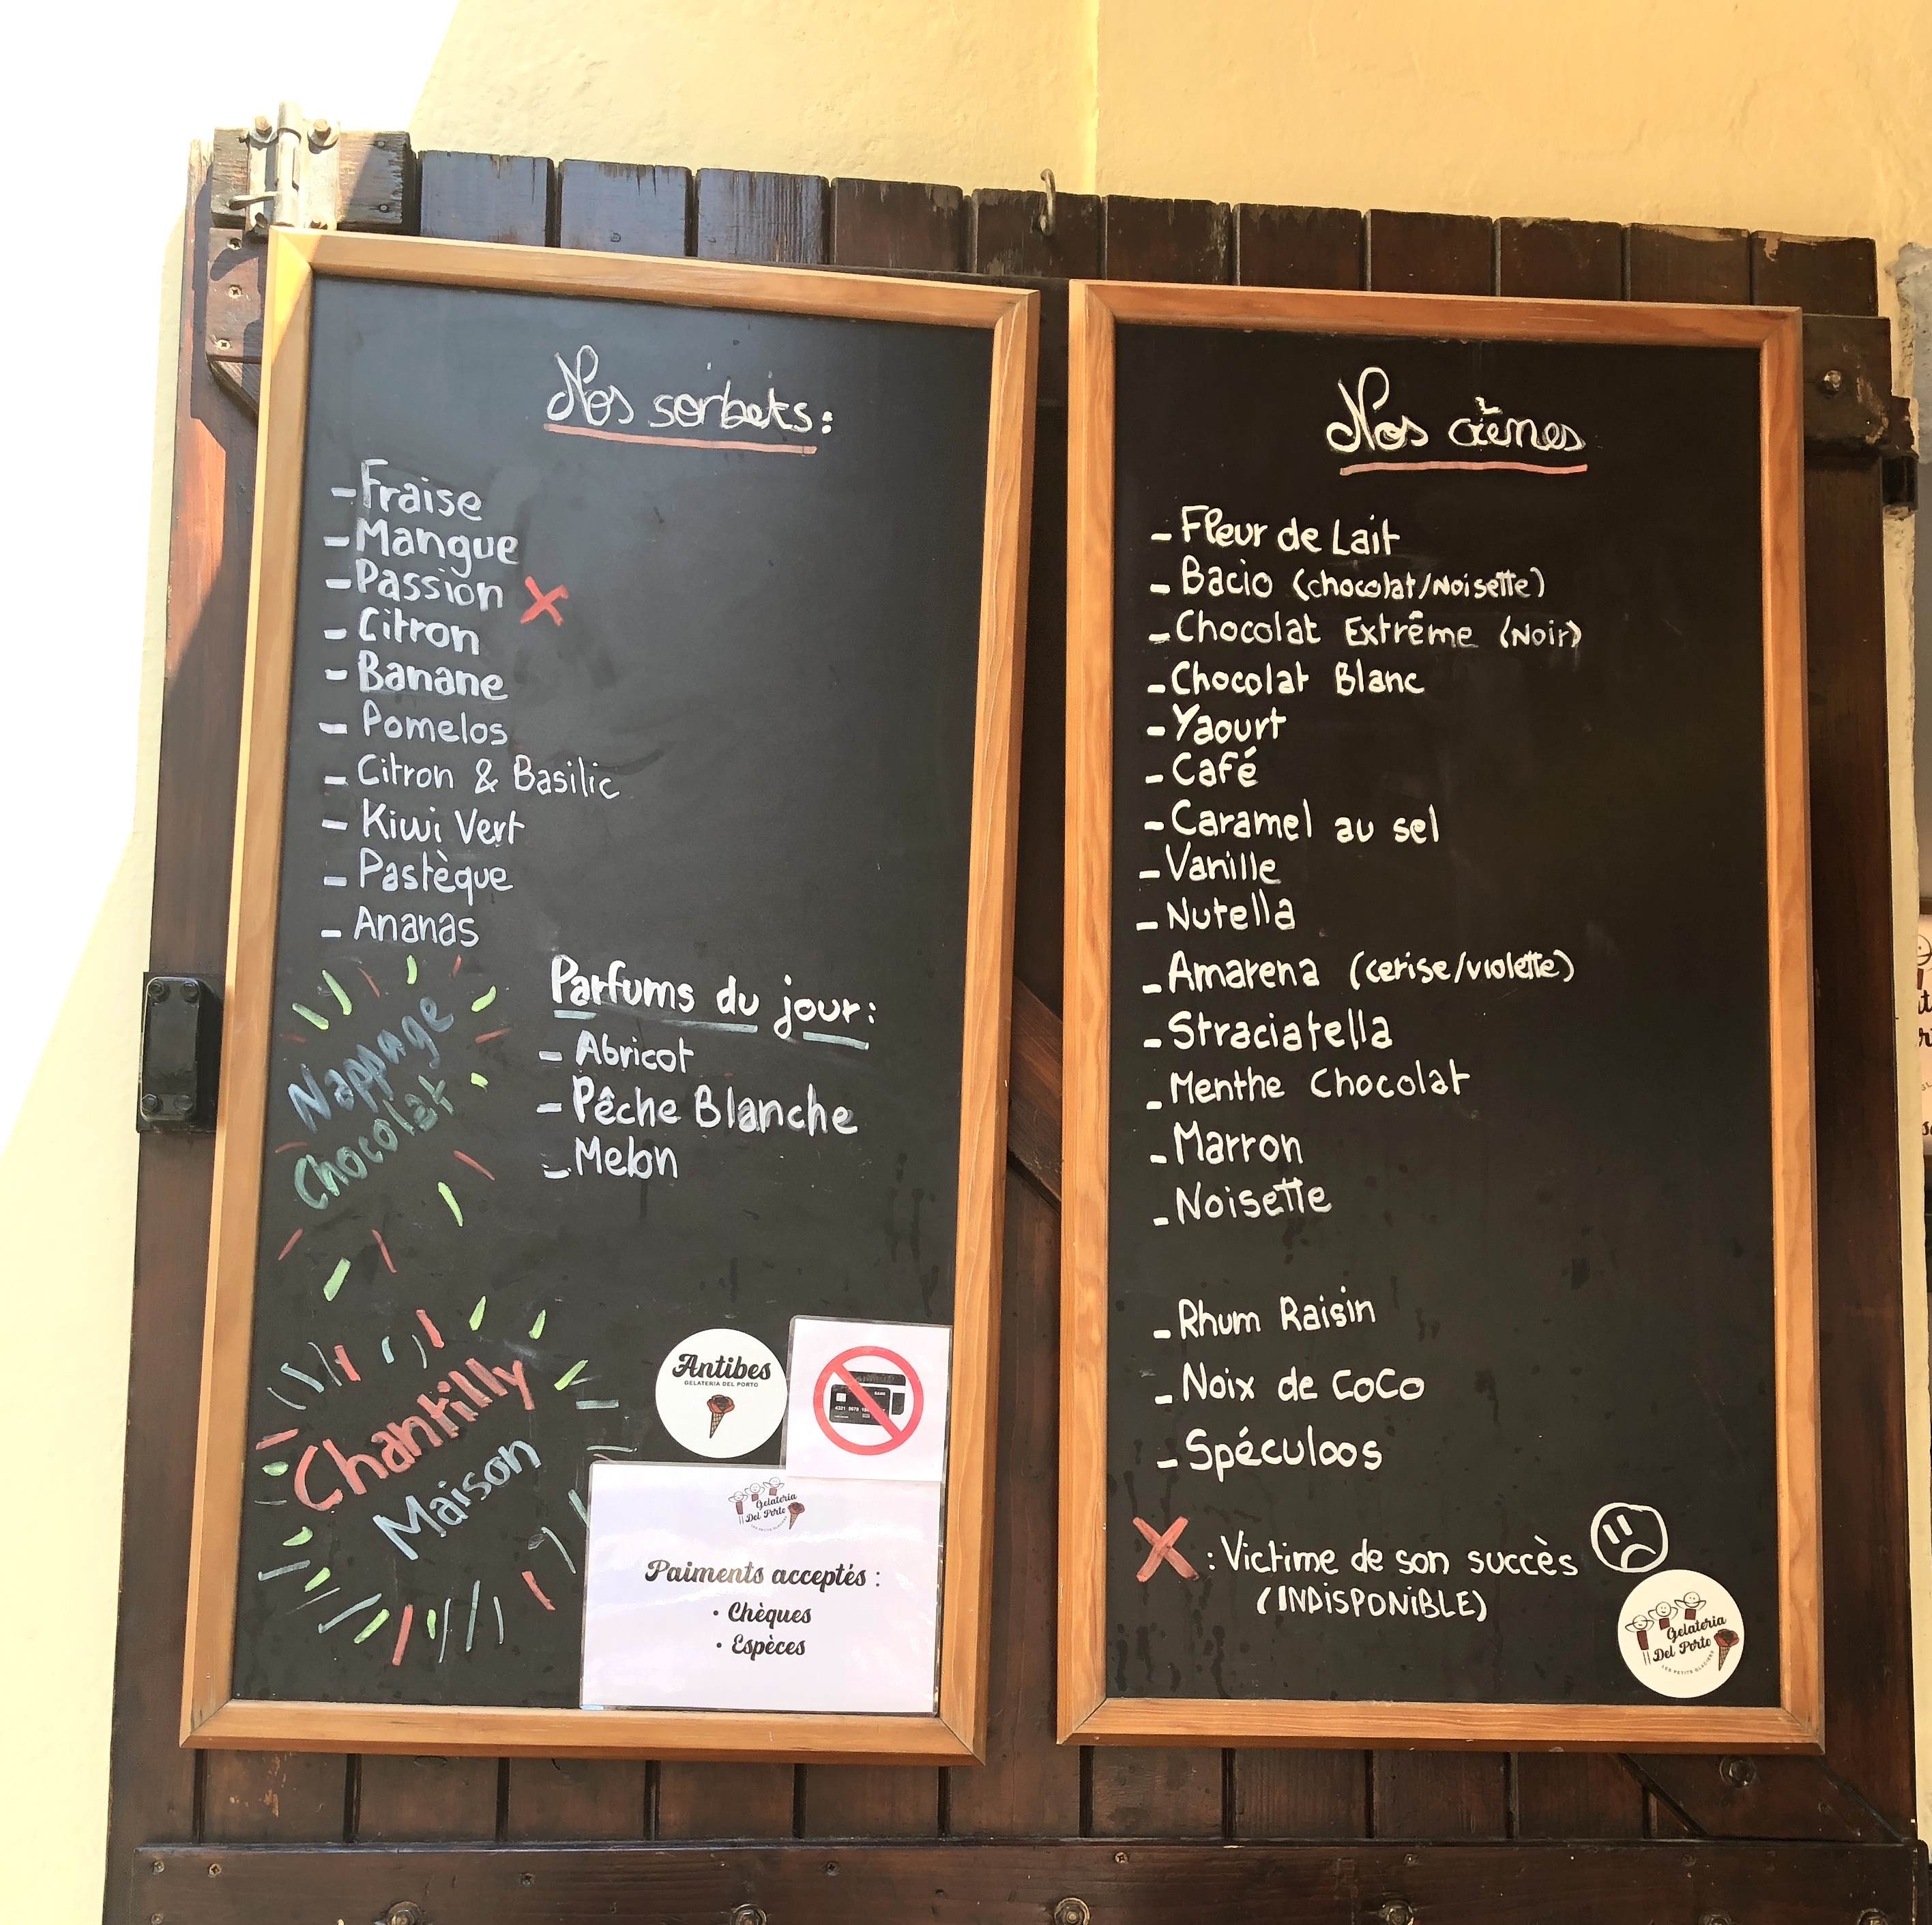 Nos sorbets:
- Fraise
- Mangue
- Passion X
- Citron
- Banane
- Pomelos
- Citron & Basilic
- Kiwi Vert
- Pastèque
- Ananas
Nappage
Chocolat
Parfums du jour:
- Abricot
- Pêche Blanche
- Melon
Chantilly
Maison
Antibes
GELATERIA DEL PORTO
Gelateria
Del Porto
LES PETITS GLACIERS
Paiments acceptés :
• Chèques
• Espèces
Nos crèmes
- Fleur de Lait
- Bacio (chocolat/Noisette)
- Chocolat Extrême (Noir)
- Chocolat Blanc
- Yaourt
- Café
- Caramel au sel
- Vanille
- Nutella
- Amarena (cerise/violette)
- Straciatella
- Menthe Chocolat
- Marron
- Noisette
- Rhum Raisin
- Noix de CoCo
- Spéculoos
X : Victime de son succès
(INDISPONiBLE)
Gelateria
Del Porto
LES PETITS GLACIERS